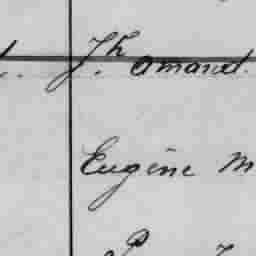 J.h amand.
Eugène M